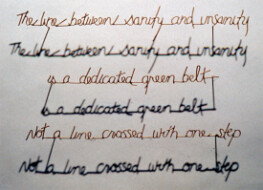 The line between sanity and insanity
The line between sanity and insanity
is a dedicated green belt
is a dedicated green belt
Not a line crossed with one step
Not a line crossed with one step